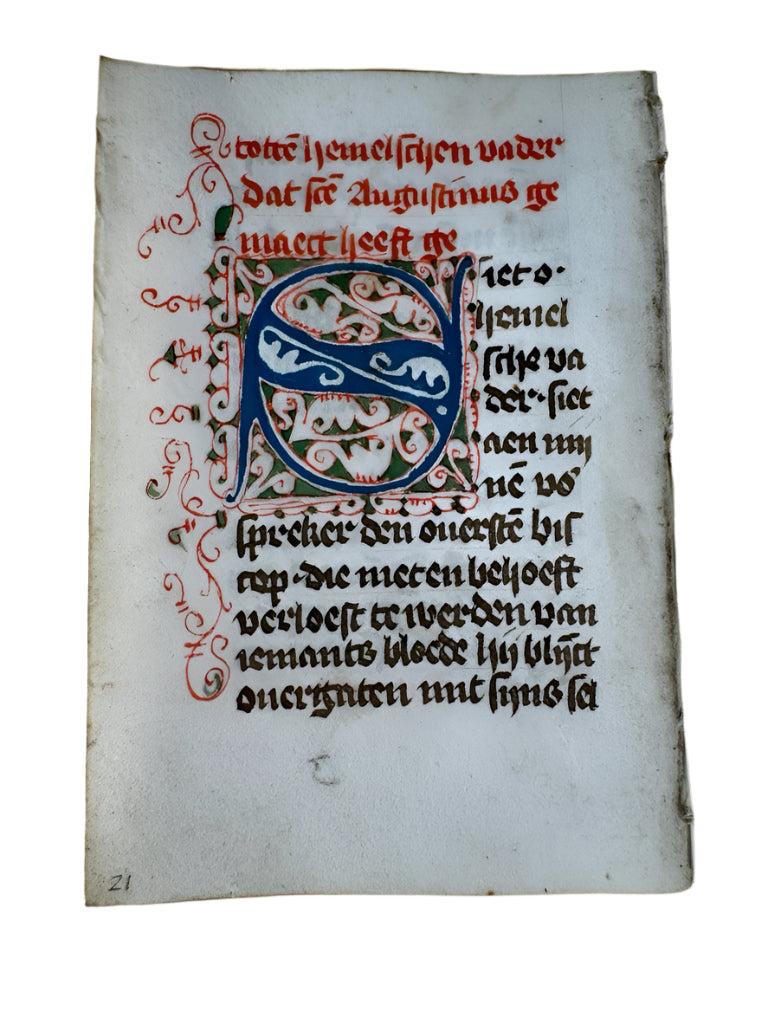 tottē hemelschen vader
dat scē Augustinus ge
maect heeft ge
Siet o·
hemel
sche va
der·siet
aen mij
nē vo͛
spreker den ouerstē bis
cop·die niet en behoeft
verloest te werden van
iemants bloede hij blijct
ouergaten mit sijns sel
21